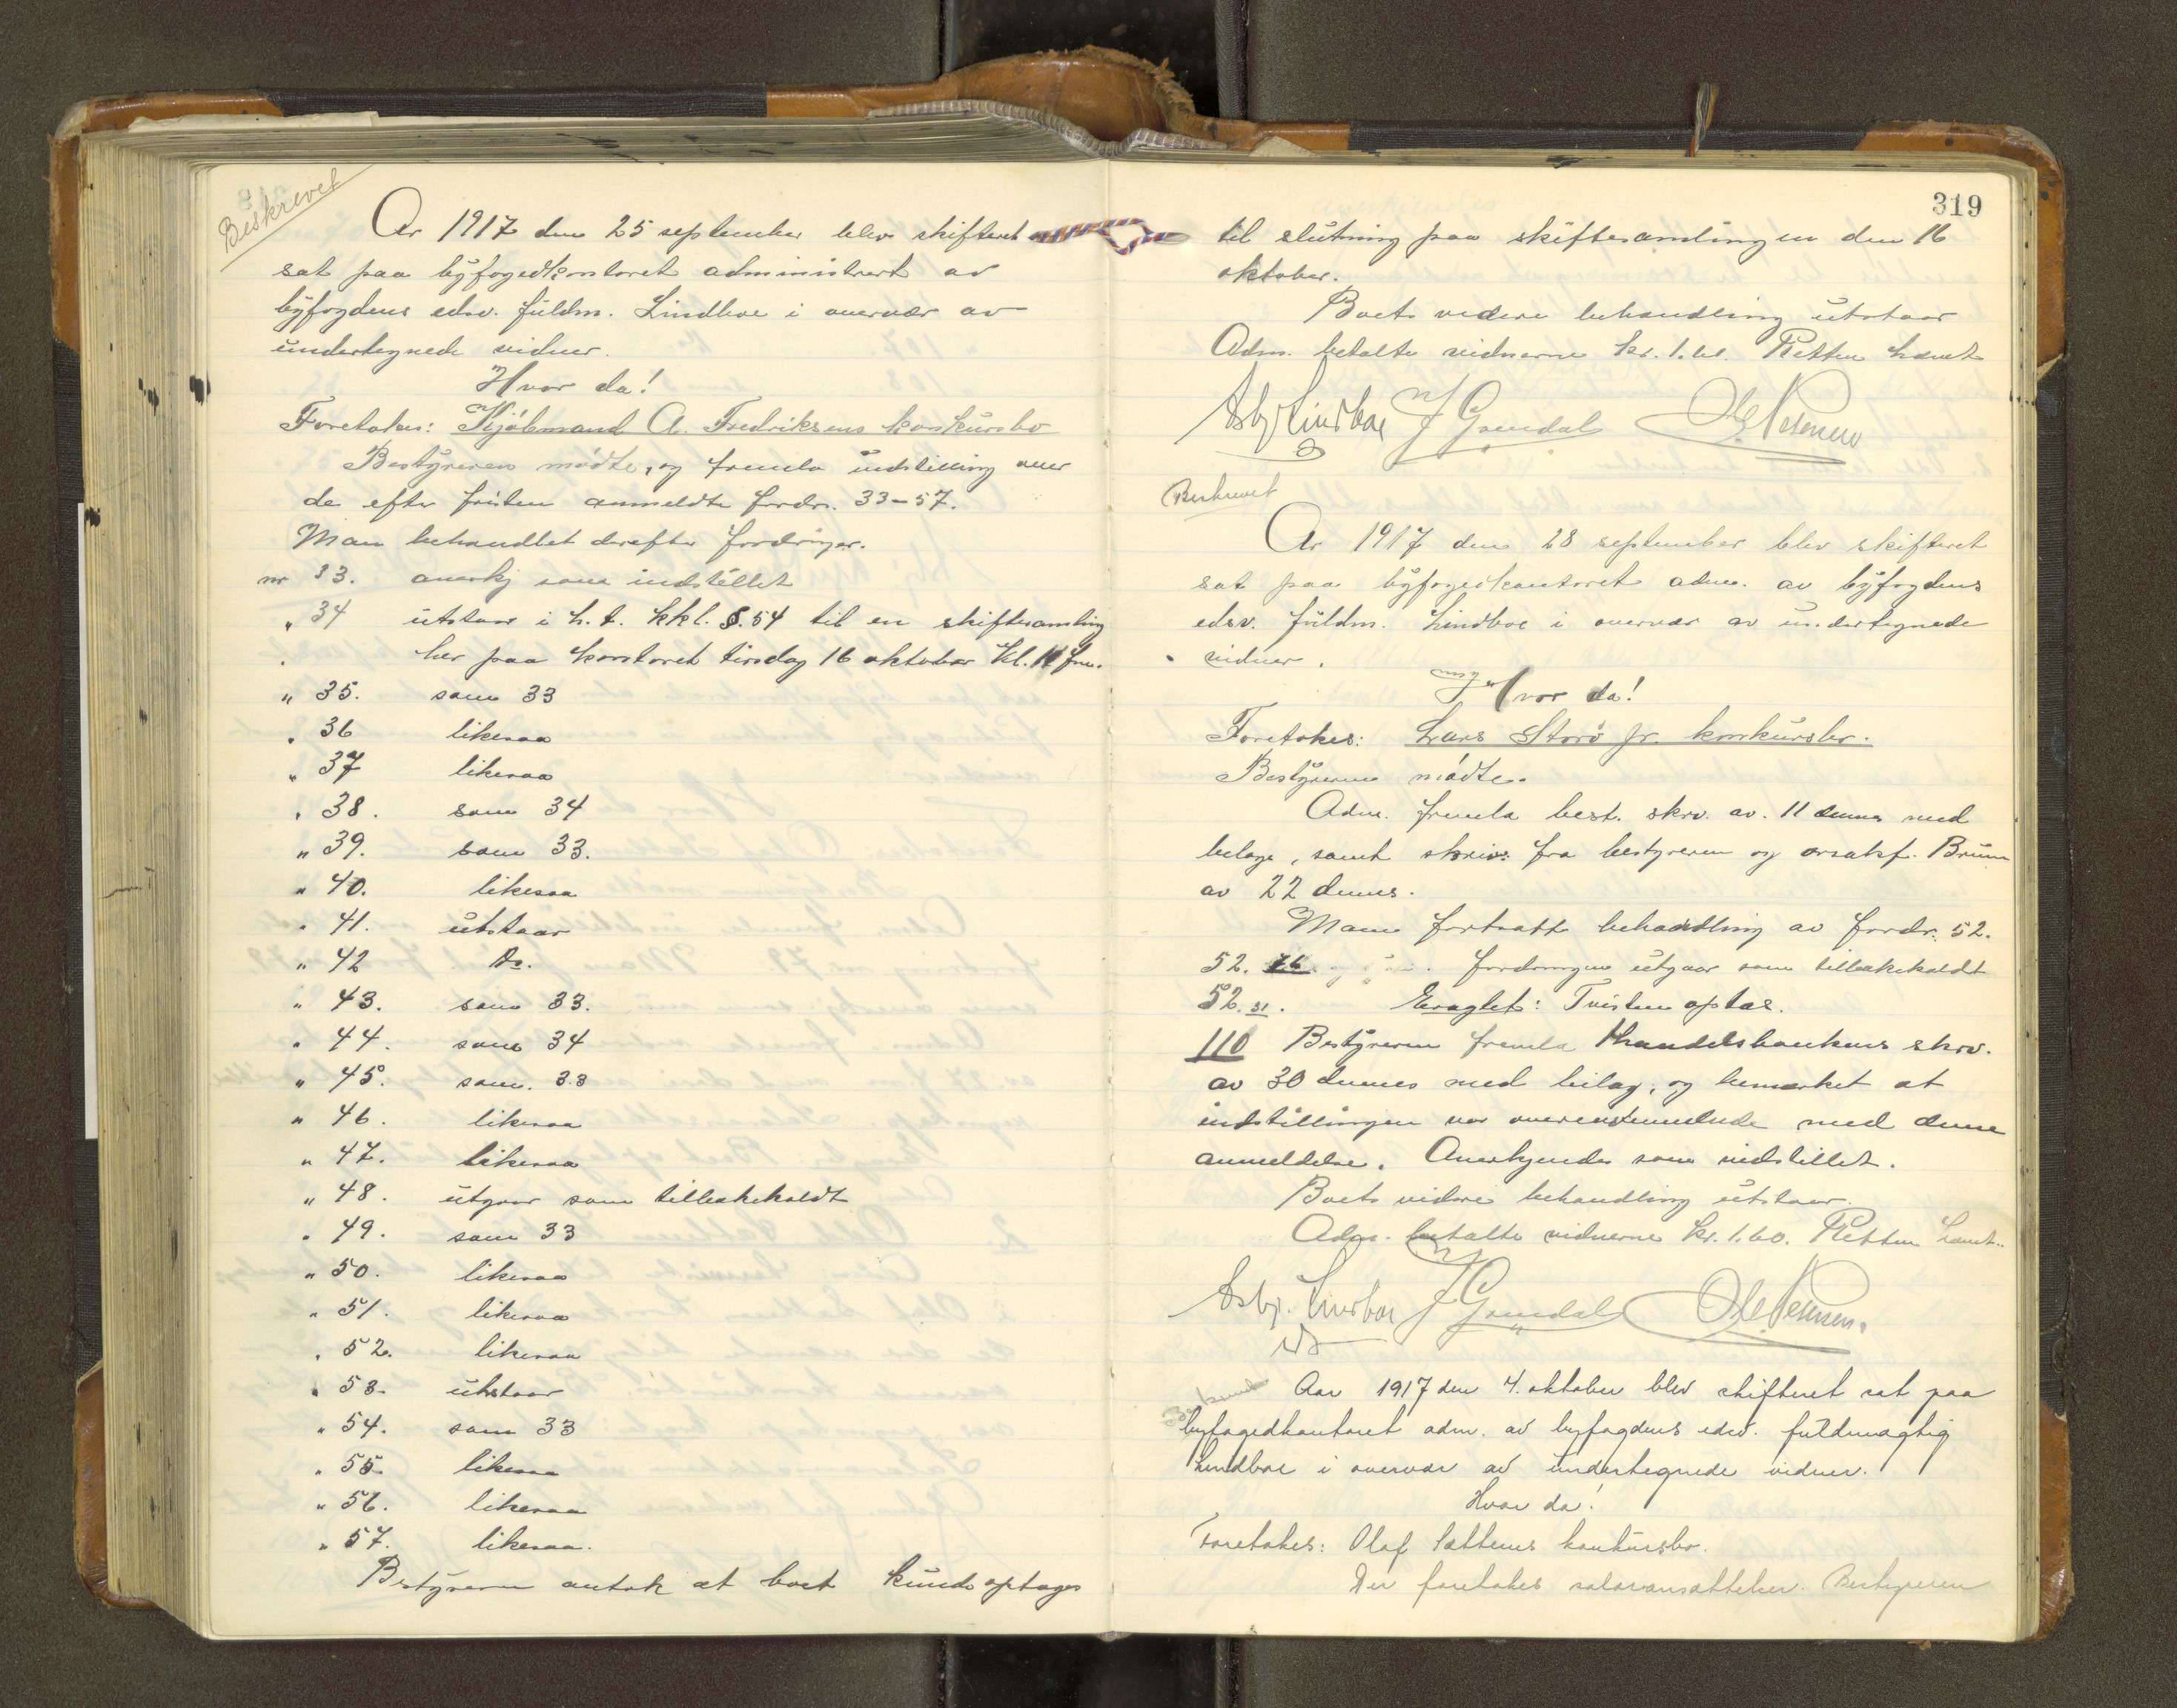 Beskrevet
Ar 1917 den 25 september blev skifteret
sat paa byfogedkontoret administrert av
byfogdens edsv. fuldm. Lindboe i overvær av
undertegnede vidner.
Hvor da!
Foretokes: Kjøbmand A. Fredriksens konkursbo
Bestyreren mødte, og fremla indstilling over
de efter fristen anmeldte fordr. 33-57.
Man behandlet derefter fordringer.
nr 33. anerkj som indstillet
" 34 utstaar i h. t. kkl. §. 54 til en skiftesamling
her paa kontoret tirsdag 16 oktober kl. 11 fm.
" 35. som 33
" 36 likesaa
" 37 likesaa
" 38. som 34
" 39. som 33.
" 40. likesaa
" 41. utstaar
" 42 Do.
" 43. som 33.
" 44. som 34
" 45. som. 33
" 46. likesaa
" 47. likesaa
" 48. utgaar som tilbakekaldt
" 49. som 33
" 50. likesaa
" 51. likesaa
" 52. likesaa
" 53. utstaar
" 54. som 33
" 55. likesaa
" 56. likesaa
" 57. likesaa.
Bestyreren antok at boet kunde optages
319
til slutning paa skiftesamlingen den 16
oktober.
Boets videre behandling utstaar
Adm. betalte vidnerne kr. 1.60. Retten hævet
Asbj Lindboe J Grendal Ole
Beskrevet
Ar 1917 den 28 september blev skifteret
sat paa byfogedkontoret adm. av byfogdens
edsv. fuldm. Lindboe i overvær av undertegnede
vidner.
Hvor da!
Foretokes: Lars Storø jr. konkursbo.
Bestyreren mødte.
Adm. fremla best. skrv. av. 11 dennes med
bilage, samt skriv: fra bestyreren og orsakf. Bruun
av 22 dennes.
Man fortsatte behandling av fordr. 52.
52. 76. fordringen utgaar som tilbakekaldt
52. 31. Eragtet: Tvisten optas.
110 Bestyreren fremla Handelsbankens skrv.
av 30 dennes med bilag, og bemerket at
indstillingen var overensstemmende med denne
anmeldelse. Anerkjendes som indstillet.
Boets videre behandling utstaar.
Adm. betalte vidnerne kr. 1.60. Retten hævet.
Asbj. Lindboe J Grendal Ole
Beskrevet
Aar 1917 den 4. oktober blev skifteret sat paa
byfogedkontoret adm. av byfogdens edsv. fuldmægtig
Lindboe i overvær av undertegnede vidner.
Hvor da!
Foretokes: Olaf Sættems konkursbo.
Der foretokes salæransættelse. Bestyreren